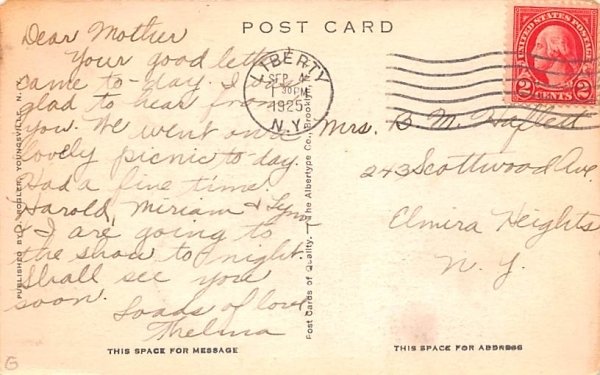 POST CARD
Dear Mother
Your good letter
came to-day. I was
glad to hear from
you. We went on a
lovely picnic to-day.
Had a fine time.
Harold, Miriam & Lynn
& I are going to
the show to night.
Shall see you
soon.
Loads of love
Thelma
THIS SPACE FOR MESSAGE
PUBLISHED BY J. ROGLER, YOUNGSVILLE, N. Y.
Post Cards of Quality. — The Albertype Co., Brooklyn,
LIBERTY
SEP 4
30 PM
1925
N.Y.
UNITED STATES POSTAGE
2 CENTS 2
Mrs. B. M. Haflett
243 Scottwood Ave.
Elmira Heights
N. Y.
THIS SPACE FOR ADDRESS
G